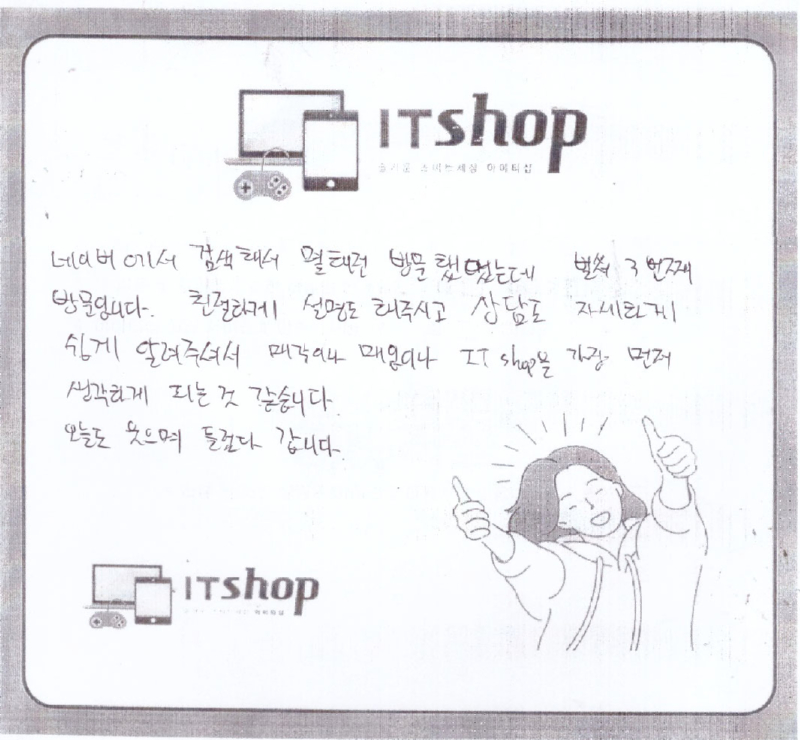 ITshop
즐거운 스마트세상 아이티샵
네이버에서 검색해서 몇해전 방문했었는데 벌써 3번째
방문입니다. 친절하게 설명도 해주시고 상담도 자세하게
쉽게 알려주셔서 매각이나 매입이나 IT shop을 가장 먼저
생각하게 되는것 같습니다.
오늘도 웃으며 들렀다 갑니다.
ITshop